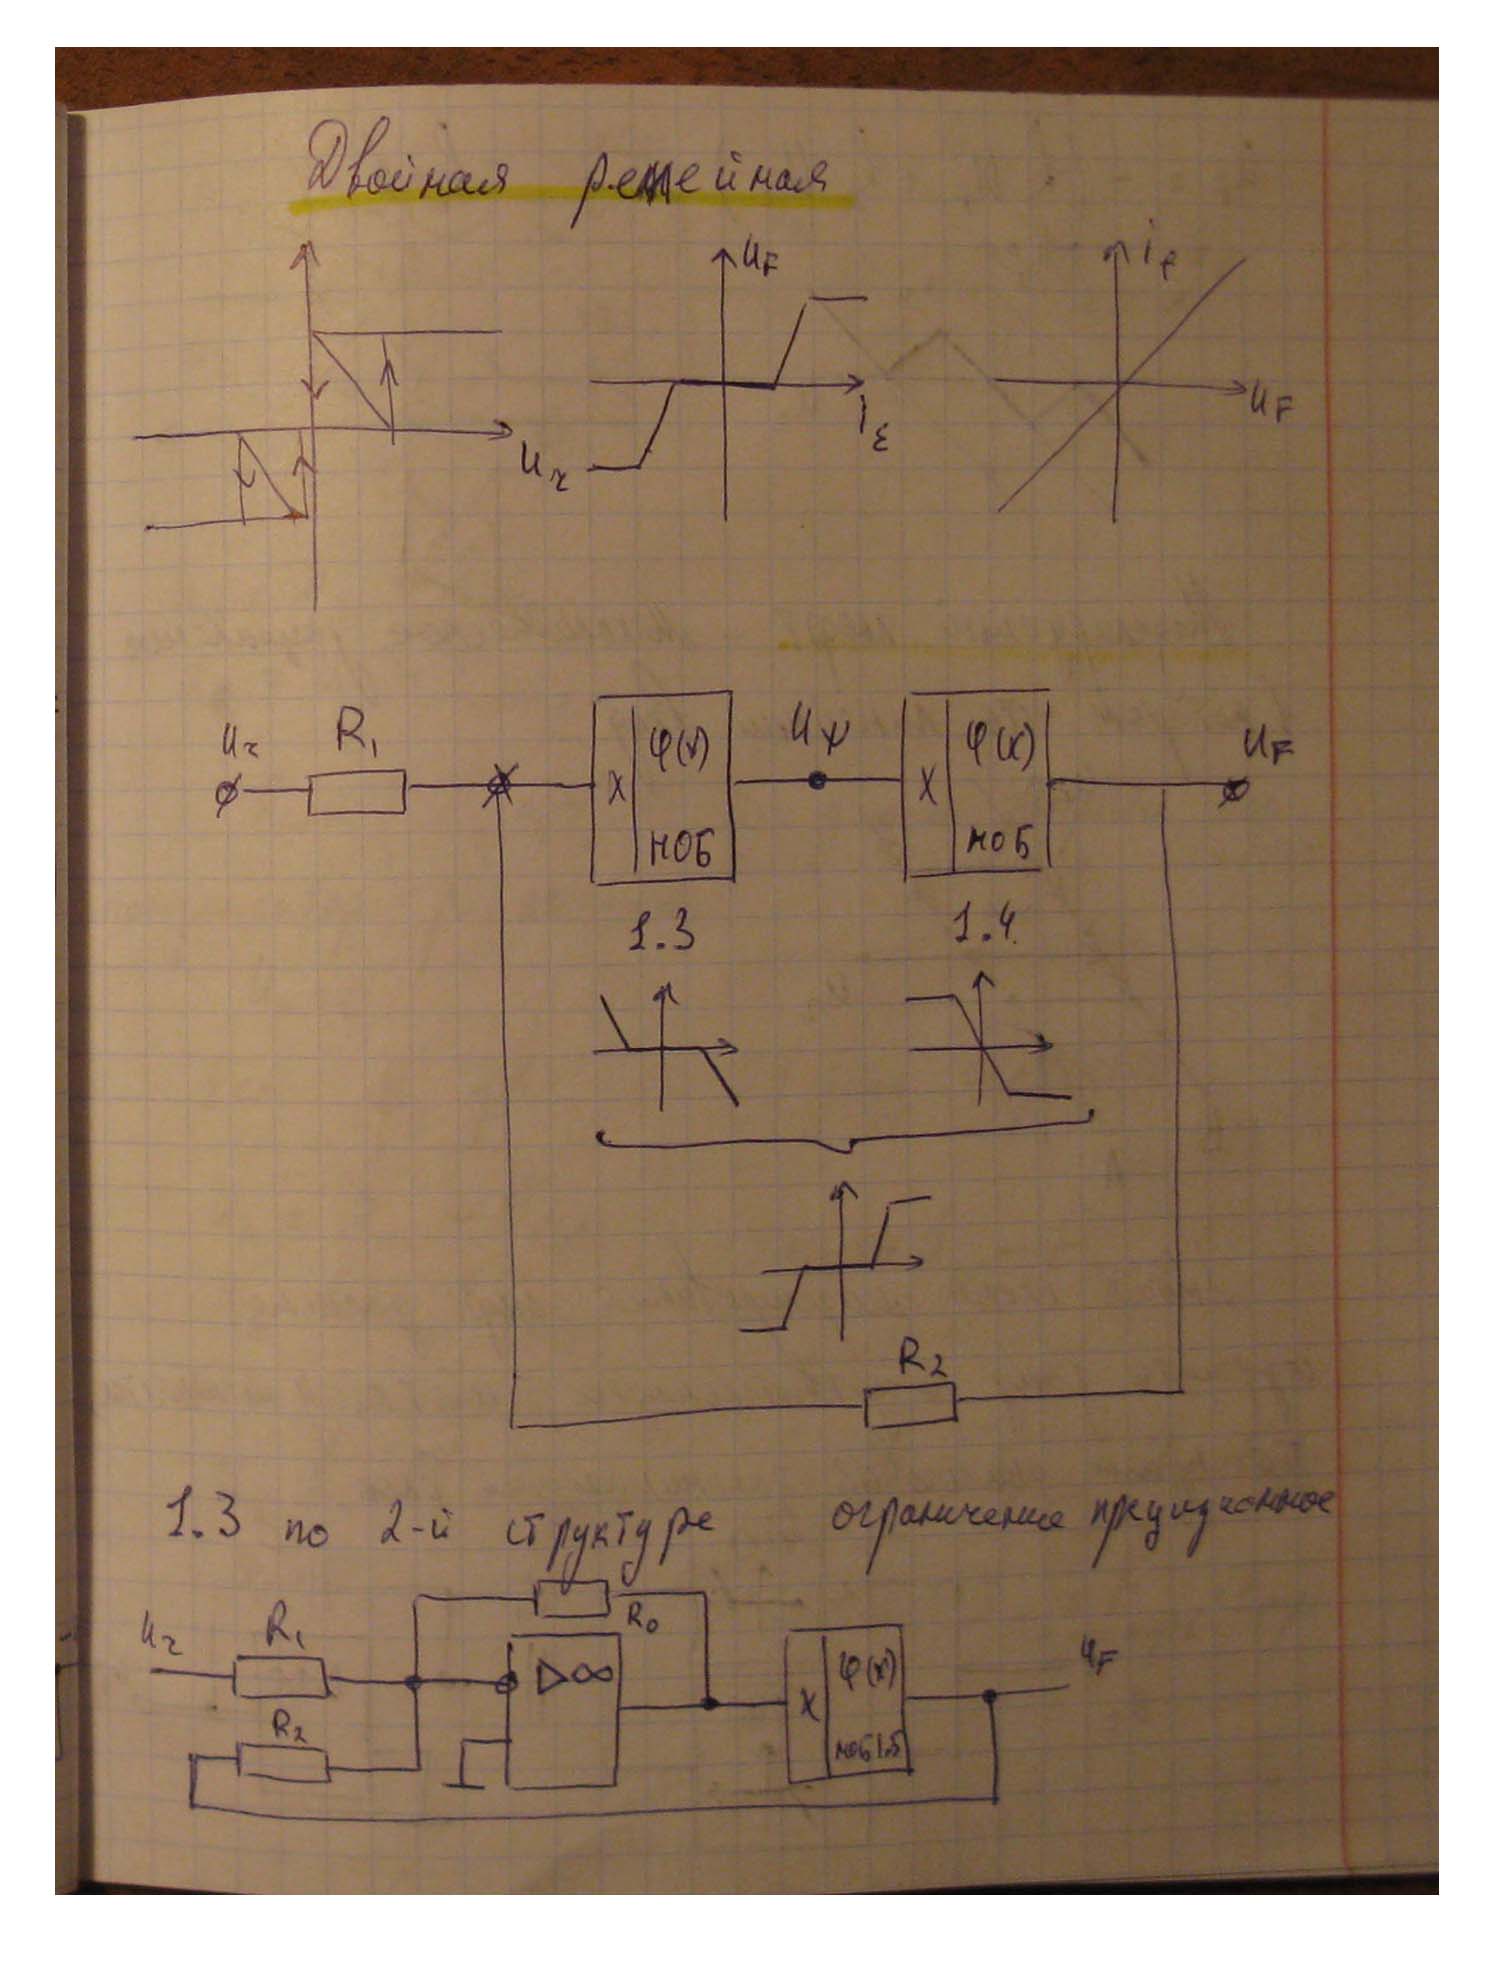 Двойная релейная
U_F i_f
U_r i_ε U_F
U_r R_1 U_ψ U_F
X φ(x) X φ(x)
НОБ НОБ
1.3 1.4
R_2
1.3 по 2-й структуре ограничение прецизионное
R_0
U_r R_1 ▷∞ X φ(x) U_F
R_2 НОБ1.5